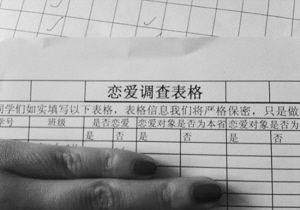 恋爱调查表格
同学们如实填写以下表格，表格信息我们将严格保密，只是做
学号 班级 是否恋爱 恋爱对象是否为本省 恋爱对象是否为
是 否 是 否 是